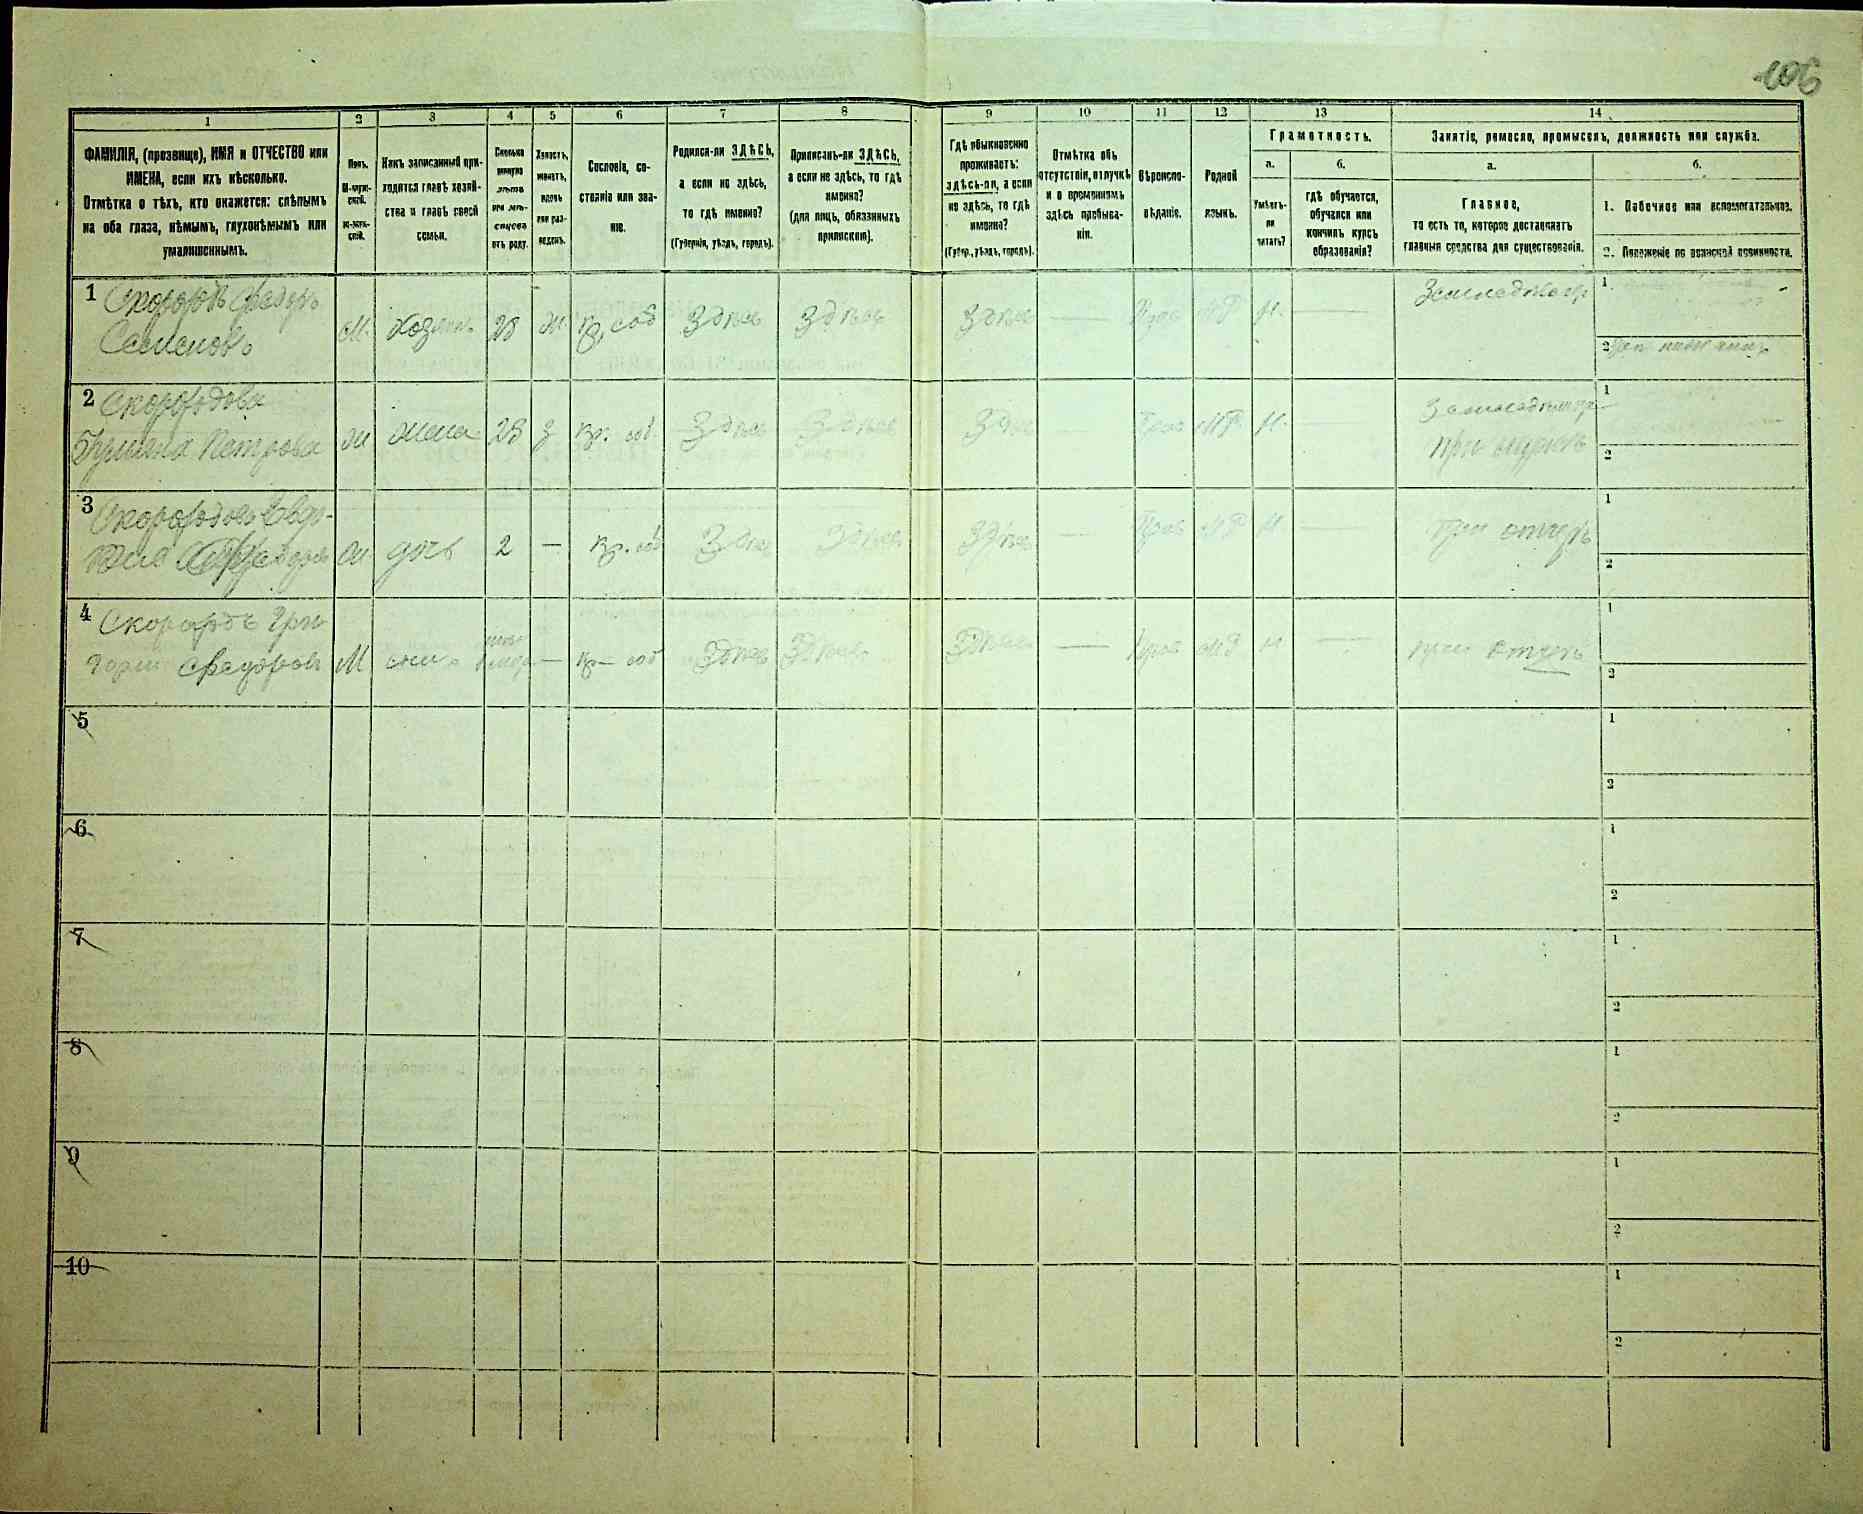 106
1
2
3
4
5
6
7
8
9
10
11
12
13
14
ФАМИЛІЯ, (прозвище), ИМЯ и ОТЧЕСТВО или
ИМЕНА, если ихъ нѣсколько.
Отмѣтка о тѣхъ, кто окажется: слѣпымъ
на оба глаза, нѣмымъ, глухонѣмымъ или
умалишеннымъ.
Полъ.
М-муж-
ской.
Ж-жен-
скій.
Какъ записанный при-
ходится главѣ хозяй-
ства и главѣ своей
семьи.
Сколько
минуло
лѣтъ
или мѣ-
сяцевъ
отъ роду.
Холостъ,
женатъ,
вдовъ
или раз-
веденъ.
Сословіе, со-
стояніе или зва-
ніе.
Родился-ли ЗДѢСЬ,
а если не здѣсь,
то гдѣ именно?
(Губернія, уѣздъ, городъ).
Приписанъ-ли ЗДѢСЬ,
а если не здѣсь, то гдѣ
именно?
(для лицъ, обязанныхъ
припискою).
Гдѣ обыкновенно
проживаетъ:
здѣсь-ли, а если
не здѣсь, то гдѣ
именно?
(Губер., уѣздъ, городъ).
Отмѣтка объ
отсутствіи, отлучкѣ
и о временномъ
здѣсь пребыва-
ніи.
Вѣроиспо-
вѣданіе.
Родной
языкъ.
Грамотность.
а.
б.
Умѣетъ-
ли
читать?
гдѣ обучается,
обучался или
кончилъ курсъ
образованія?
Занятіе, ремесло, промыселъ, должность или служба.
а.
б.
Главное,
то есть то, которое доставляетъ
главныя средства для существованія.
1. Побочное или вспомогательное.
2. Положеніе по воинской повинности.
1
Скородъ Федоръ
Семеновъ
М. хозяинъ 28 ж кр. соб Здѣсь Здѣсь Здѣсь — Прав М Р Н. —
1
2
2
Скородова
Петрова
ж жена 23 З кр. соб. Здѣсь Здѣсь Здѣсь — Прав М Р Н. —
при мужѣ
1
2
3
ж дочь 2 — кр. соб Здѣсь Здѣсь Здѣсь — Прав М Р Н —
при отцѣ
1
2
4
Скородъ Гри-
горій Федоровъ
М сынъ — кр. соб Здѣсь Здѣсь Здѣсь — Прав М Р Н —
при отцѣ
1
2
5
1
2
6
1
2
7
1
2
8
1
2
9
1
2
10
1
2